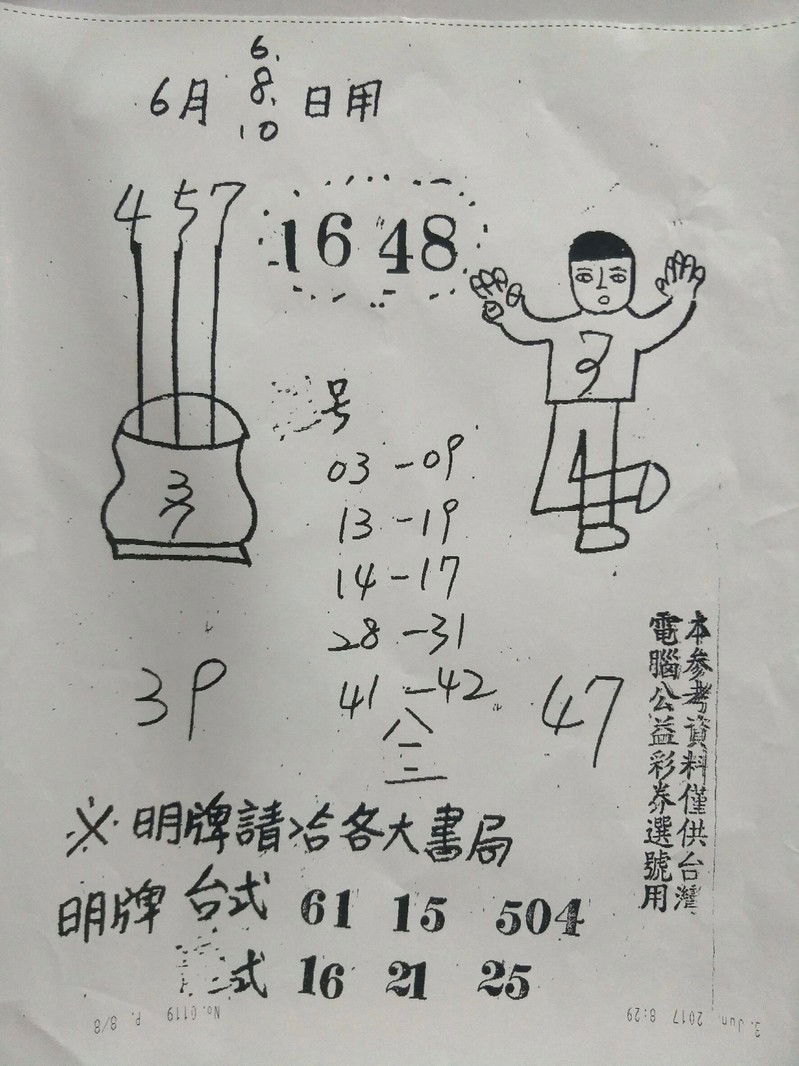 6月 6. 8. 10 日用
4 5 7
16 48
号
03-09
13-19
14-17
28-31
41-42
八
二
39
47
本參考資料僅供台灣
電腦公益彩券選號用
※明牌請洽各大書局
明牌 台式 61 15 504
式 16 21 25
No.0119 P. 8/8
3. Jun. 2017 8:29